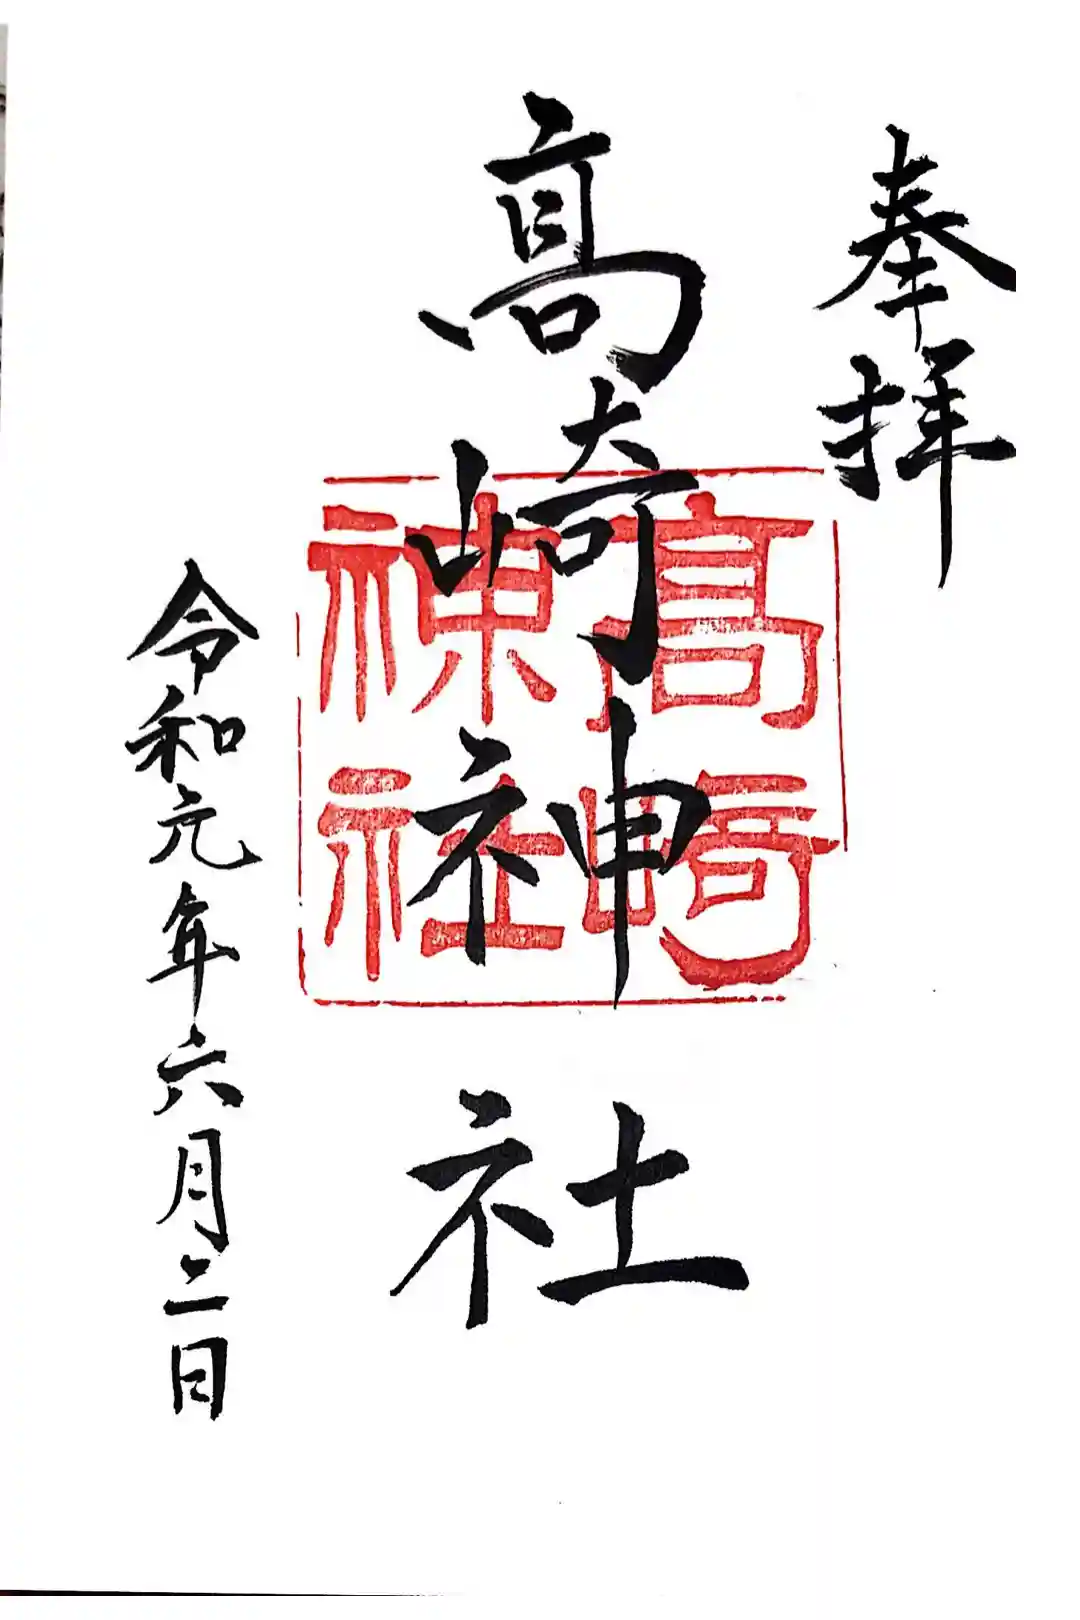 奉拝
髙崎神社
髙崎
神社
令和元年六月二日